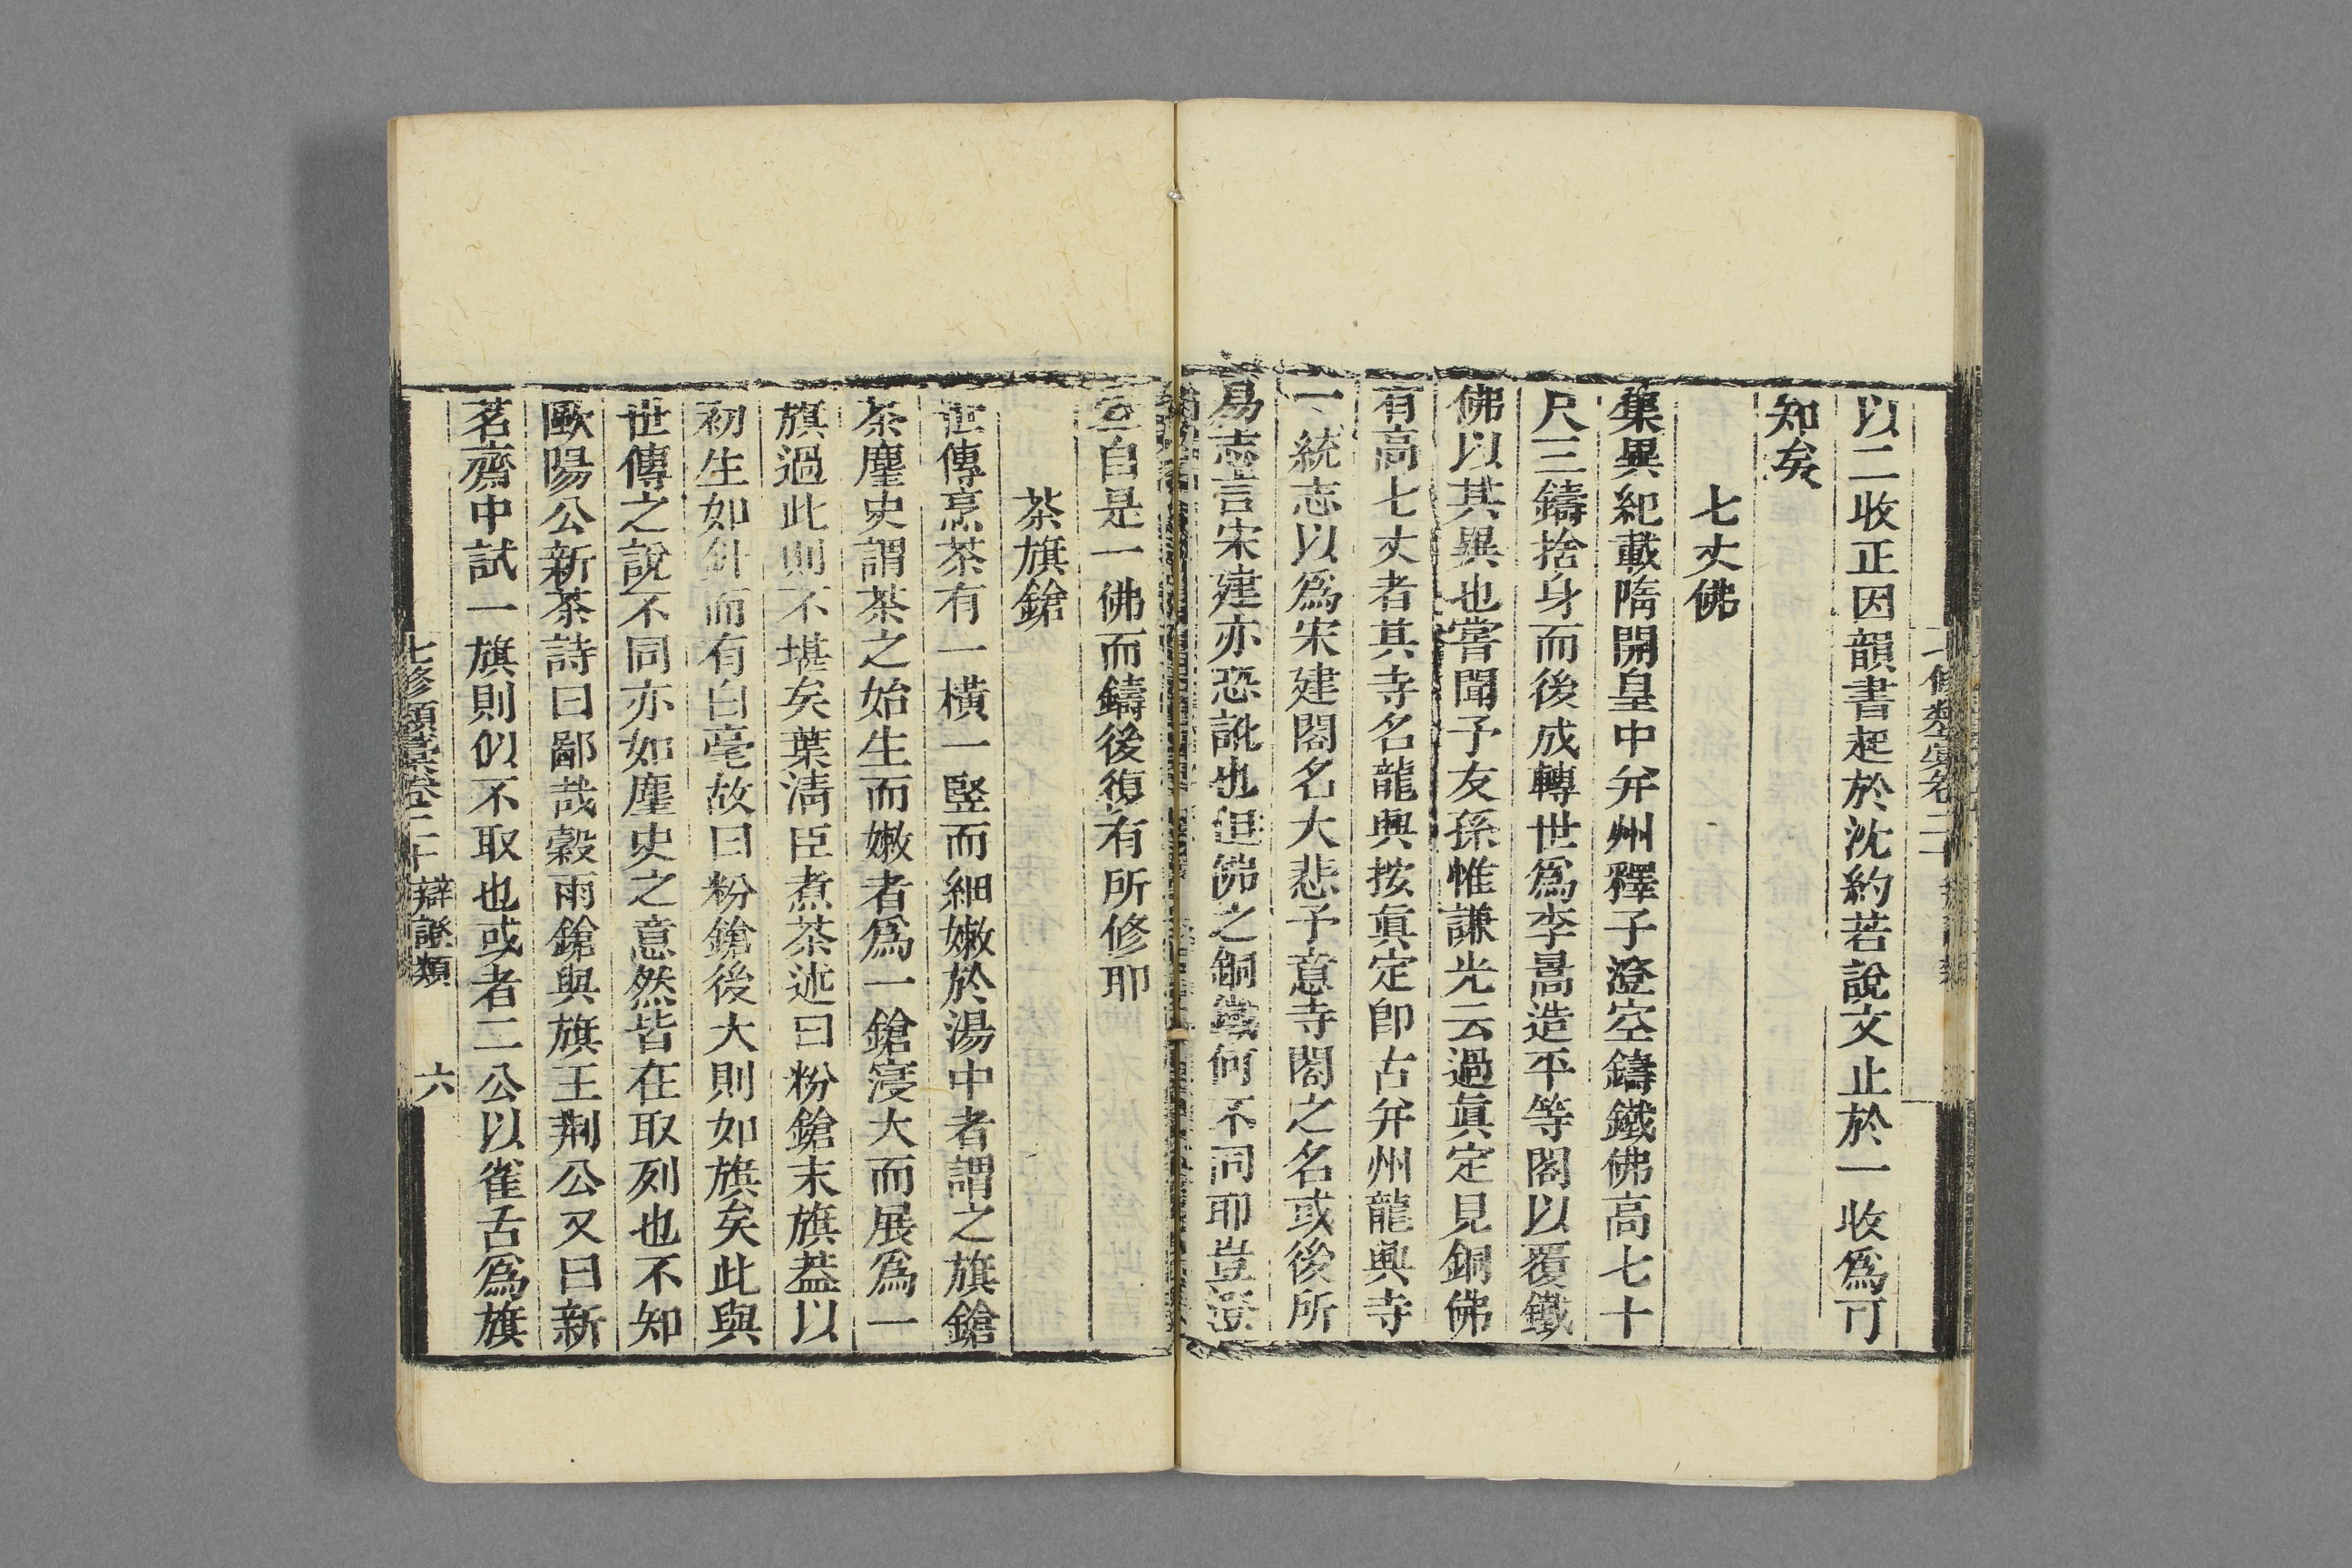 以二收正因韻書起於沈約若說文止於一收爲可
知矣
七丈佛
集異紀載隋開皇中并州釋子澄空鑄鐵佛高七十
尺三鑄捨身而後成轉世爲李暠造平等閣以覆鐵
佛以其異也嘗聞予友孫惟謙光云過眞定見銅佛
有高七丈者其寺名龍興按眞定卽古并州龍興寺
一統志以爲宋建閣名大悲予意寺閣之名或後所
易志言宋建亦恐訛也但佛之銅鐵何不同耶豈澄
空自是一佛而鑄後復有所修耶
茶旗鎗
世傳烹茶有一橫一竪而細嫩於湯中者謂之旗鎗
茶麈史謂茶之始生而嫩者爲一鎗寖大而展爲一
旗過此則不堪矣葉淸臣煮茶述曰粉鎗末旗葢以
初生如針而有白毫故曰粉鎗後大則如旗矣此與
世傳之說不同亦如麈史之意然皆在取列也不知
歐陽公新茶詩曰鄙哉穀雨鎗與旗王荆公又曰新
茗齋中試一旗則似不取也或者二公以雀舌爲旗
七修類藁卷二十 辯證類 六